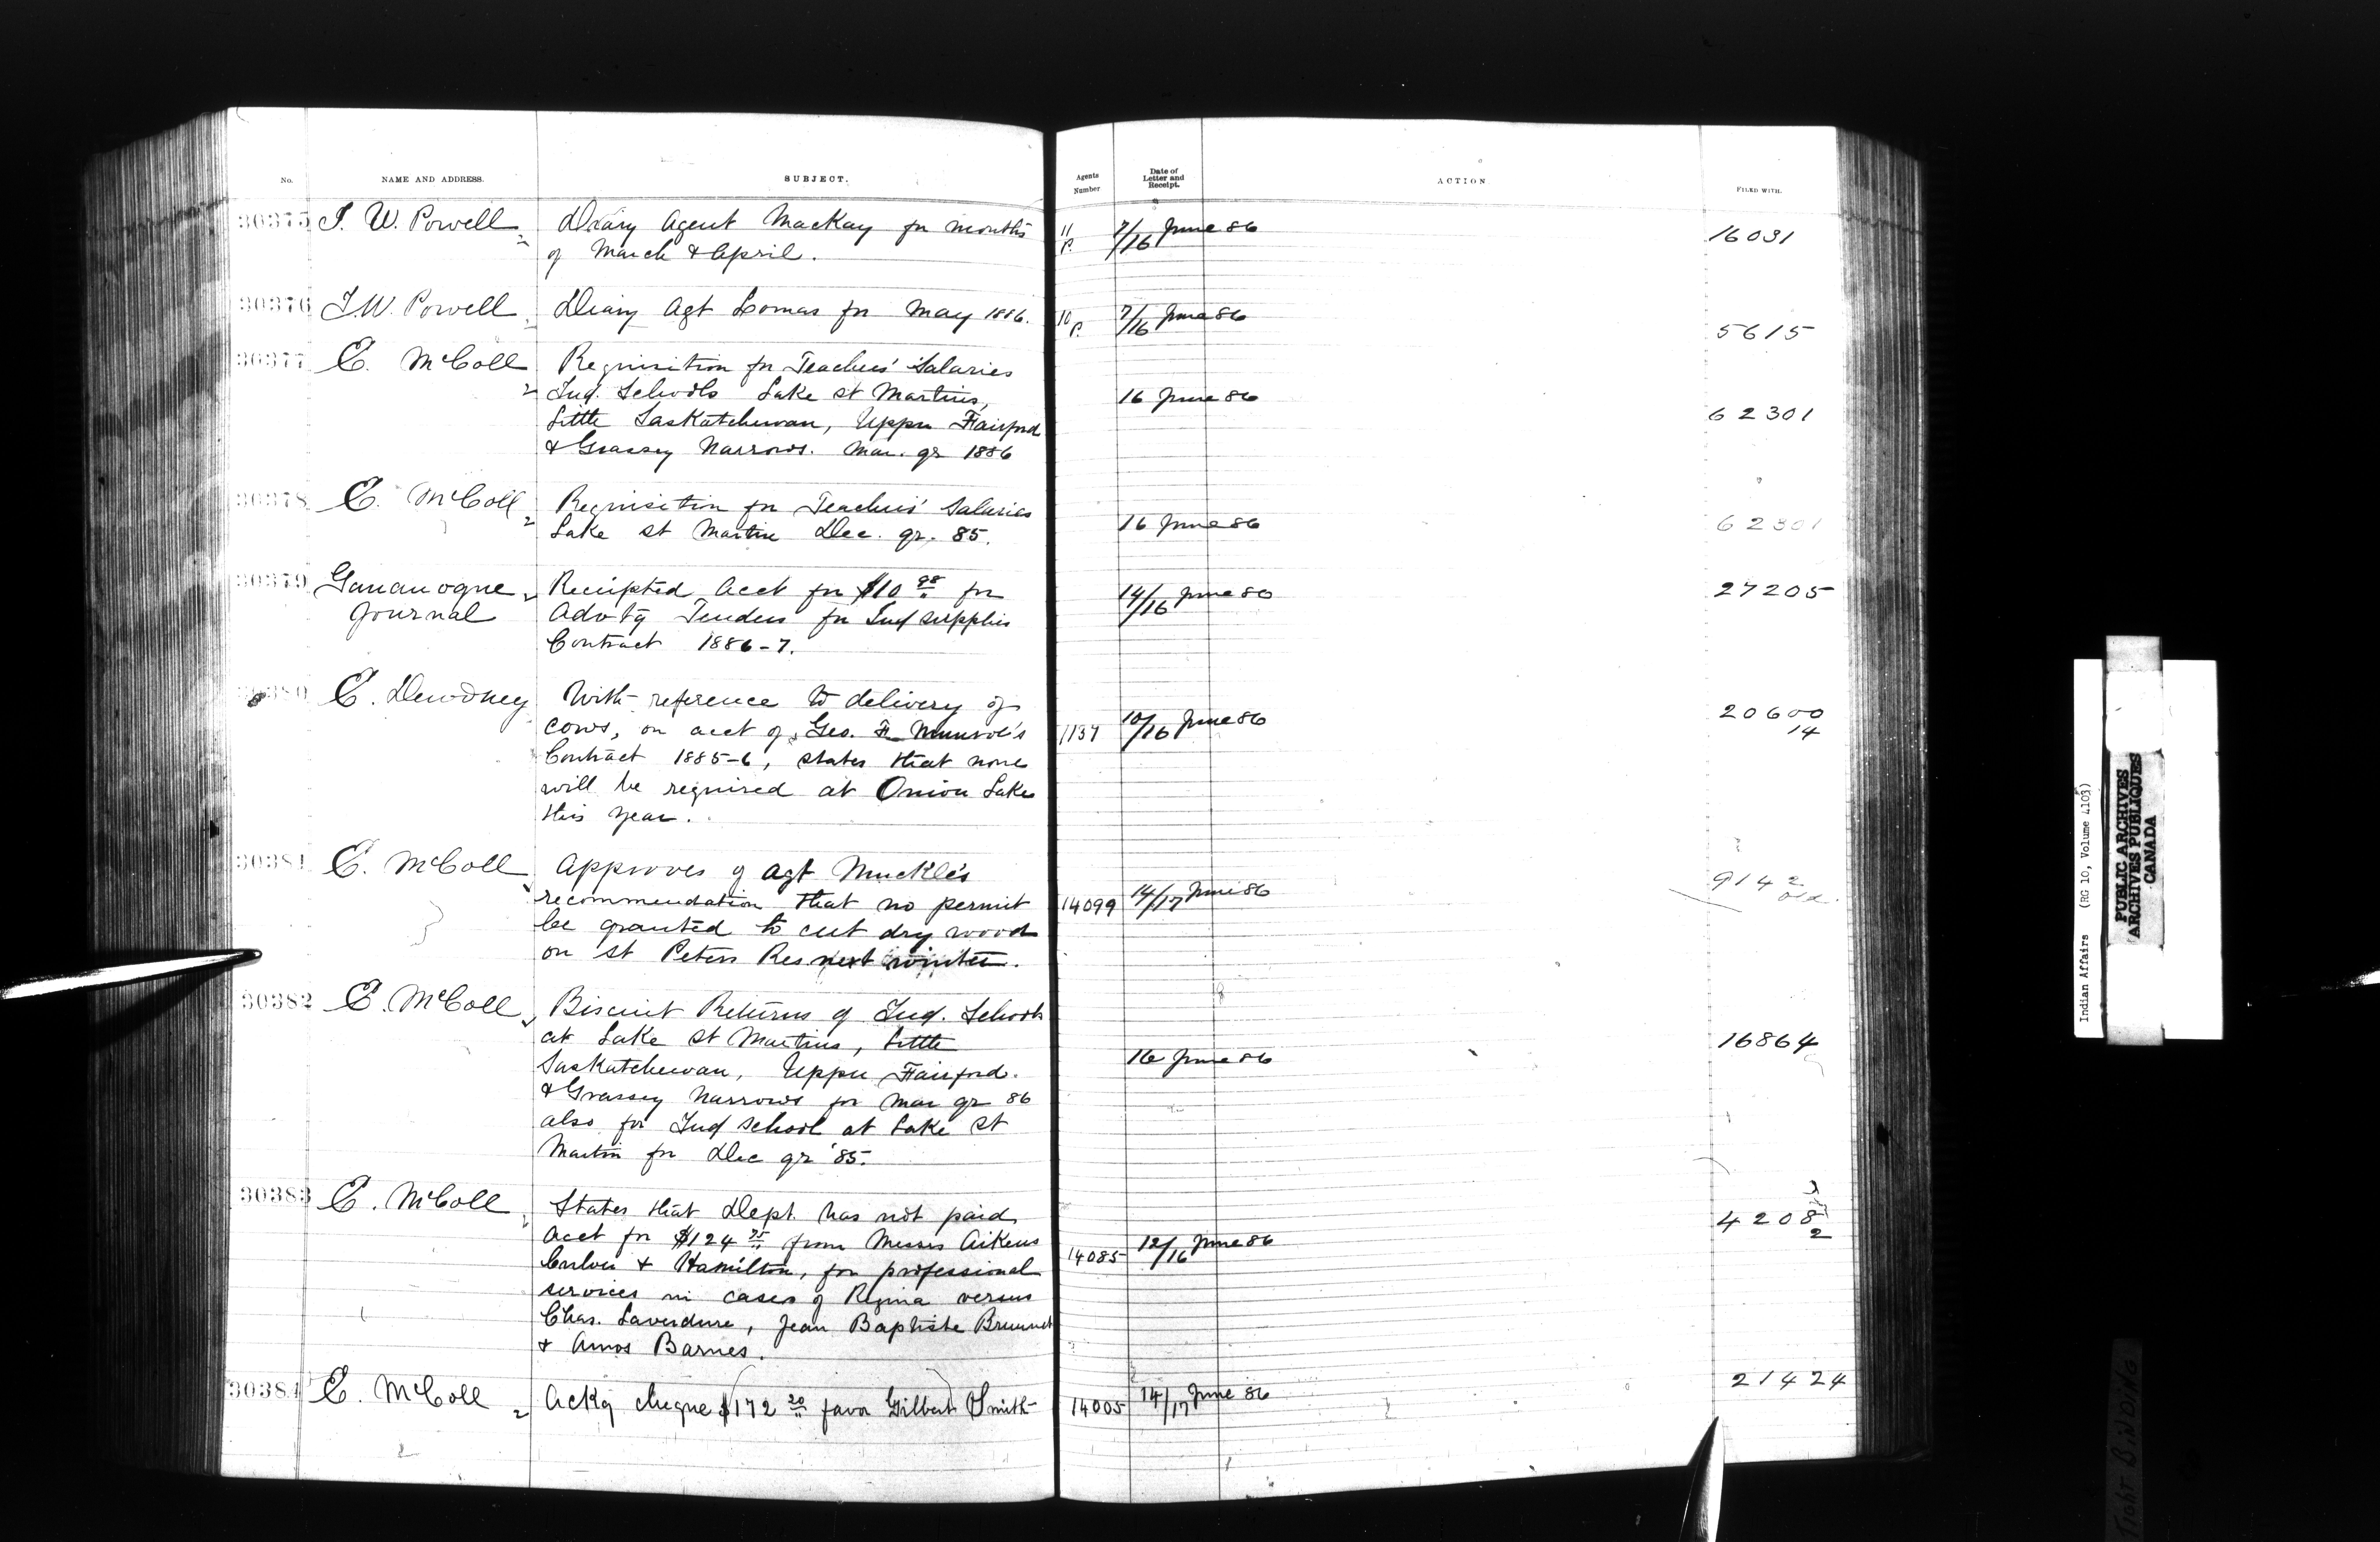 No.
NAME AND ADDRESS.
SUBJECT.
Agents
Number
Date of
Letter and
Receipt.
ACTION
FILED WITH.
30375 I. W. Powell
Diary Agent Mackay for months
of March & April.
11
P.
7/16 June 86
16031
30376 I. W. Powell
Diary Agt Lomas for May 1886.
10
P.
7/16 June 86
5615
30377 E. McColl
Requisition for Teachers' Salaries
Ind. Schools Lake St Martins,
Little Saskatchewan, Upper Fairford
& Grassey Narrows. Mar. qr 1886
16 June 86
62301
30378 E. McColl
Requisition for Teachers' Salaries
Lake St Martin Dec. qr. 85.
16 June 86
62301
30379 Gananoque
Journal
Receipted Acct for $10 98 for
Advtg Tenders for Ind supplies
Contract 1886-7.
14/16 June 86
27205
30380 E. Dewdney
With reference to delivery of
cows, on acct of Geo. F. Munroe's
Contract 1885-6, states that none
will be required at Onion Lake
this year.
1137
10/16 June 86
20600
14
30381 E. McColl
Approves of Agt Muckle's
recommendation that no permit
be granted to cut dry wood
on St Peters Res next winter.
14099
14/17 June 86
9142
30382 E. McColl
Biscuit Returns of Ind. Schools
at Lake St Martins, Little
Saskatchewan, Upper Fairford.
& Grassey Narrows for Mar qr 86
also for Ind school at Lake St
Martin for Dec qr '85.
16 June 86
16864
30383 E. McColl
States that Dept. has not paid
Acct for $124 75 from Messrs Aikens
Culver & Hamilton, for professional
services in cases of Regina versus
Chas. Laverdure, Jean Baptiste
& Amos Barnes.
14085
12/16 June 86
4208
2
30384 E. McColl
Ackg cheque $172 20 favor Gilbert Smith
14005
14/17 June 86
21424
Indian Affairs (RG 10, Volume 4103)
PUBLIC ARCHIVES
ARCHIVES PUBLIQUES
CANADA
TIGHT BINDING